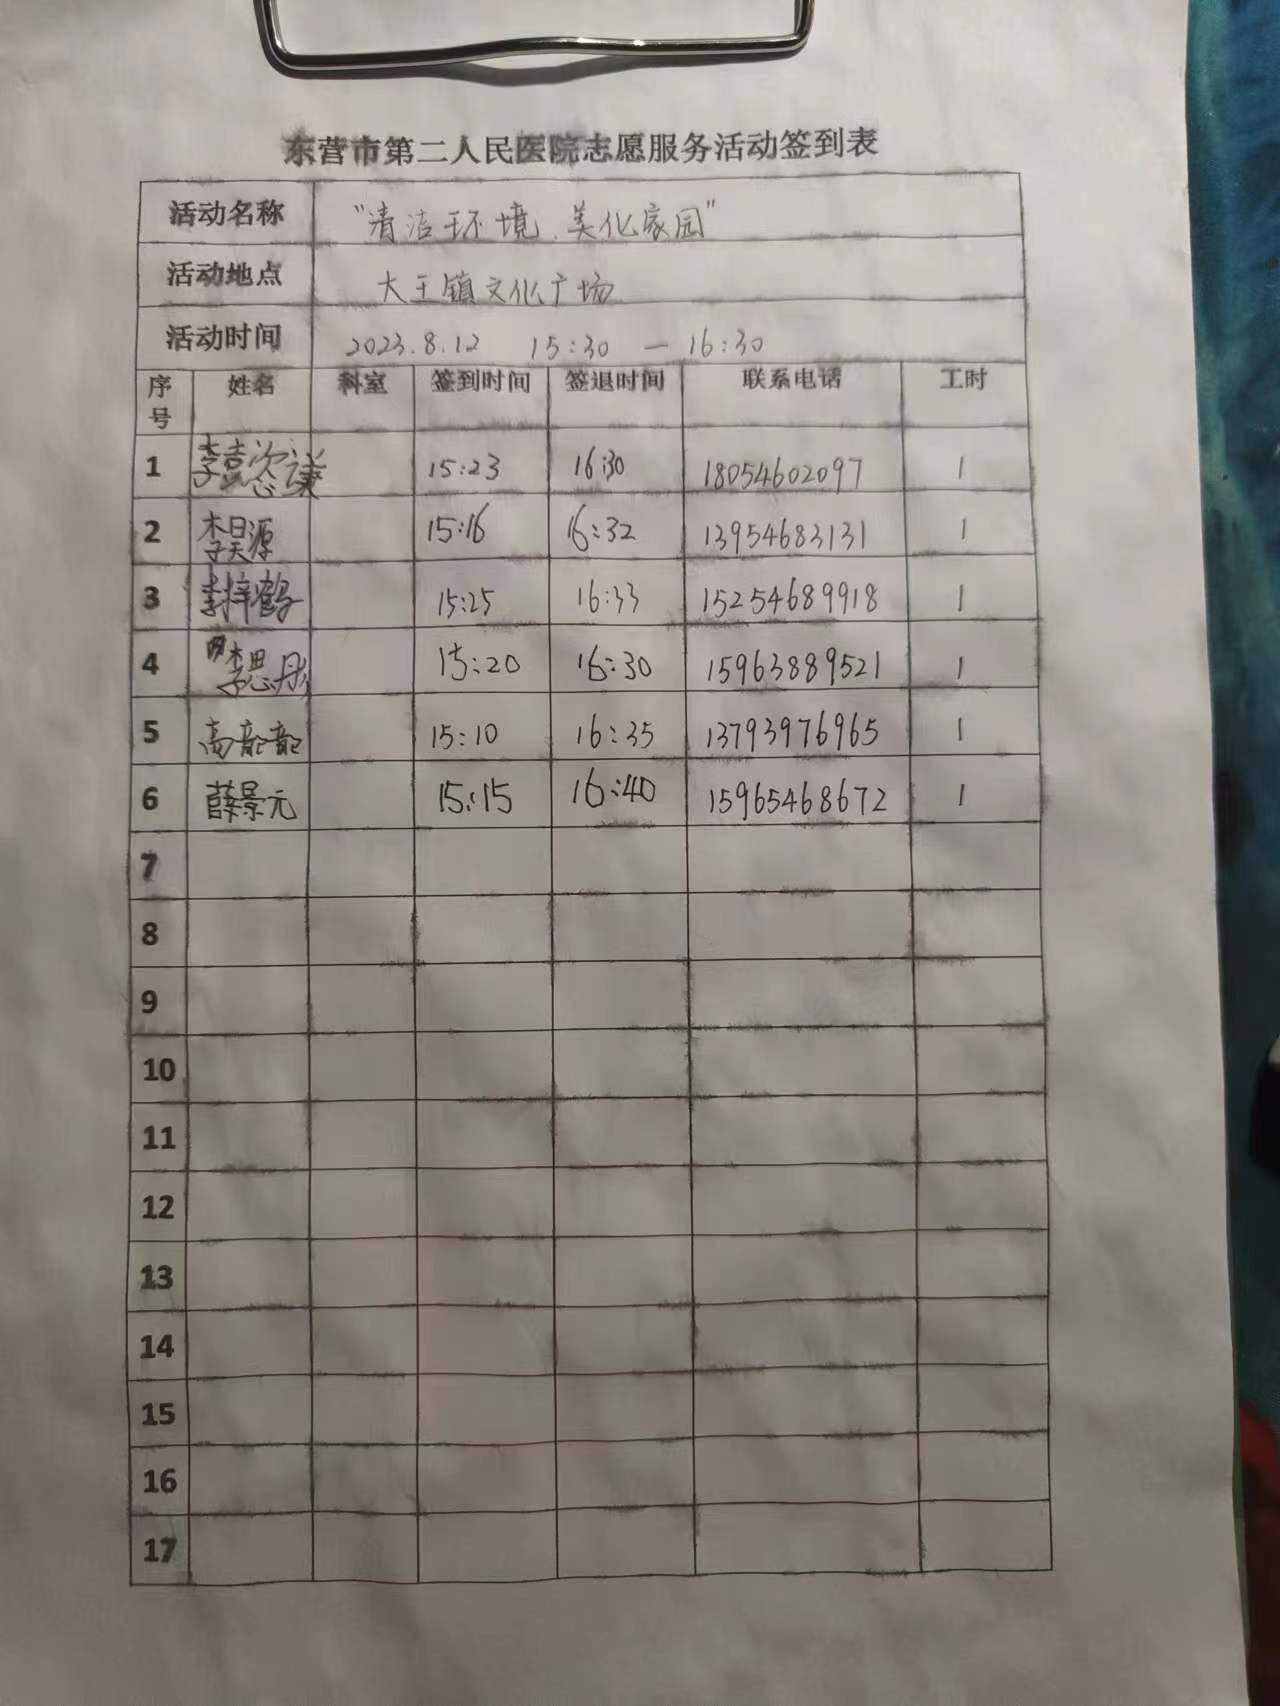 东营市第二人民医院志愿服务活动签到表
活动名称 "清洁环境、美化家园"
活动地点 大王镇文化广场
活动时间 2023.8.12 15:30 — 16:30
序号 姓名 科室 签到时间 签退时间 联系电话 工时
1 15:23 16:30 18054602097 1
2 李昊源 15:16 16:32 13954683131 1
3 李梓鹤 15:25 16:33 15254689918 1
4 李思彤 15:20 16:30 15963889521 1
5 15:10 16:35 13793976965 1
6 薛景元 15:15 16:40 15965468672 1
7
8
9
10
11
12
13
14
15
16
17